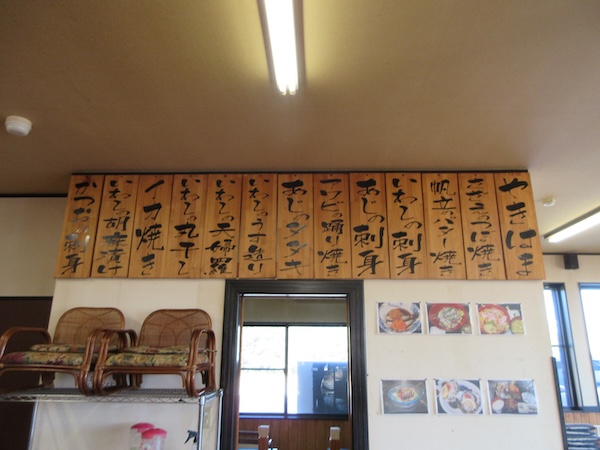 やきはま
さざえのつぼ焼き
帆立のバター焼き
いわしの刺身
あじの刺身
エビの踊り焼き
あじのタタキ
いわしのうす造り
いわしの天婦羅
いわしの丸干し
イカ焼き
いわしの胡麻漬け
かつおの刺身